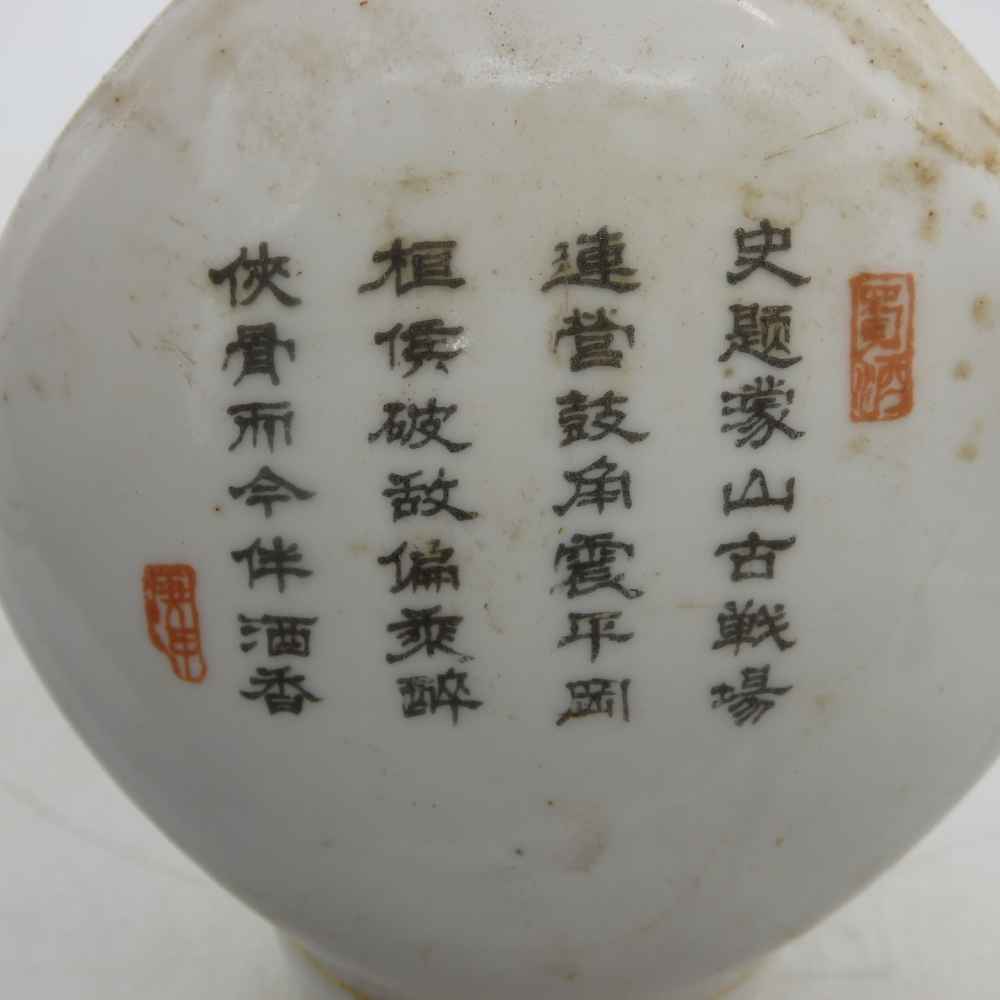 史题濛山古戦場
連营鼓角震平岡
桓侯破敌偏乘醉
俠骨而今伴酒香